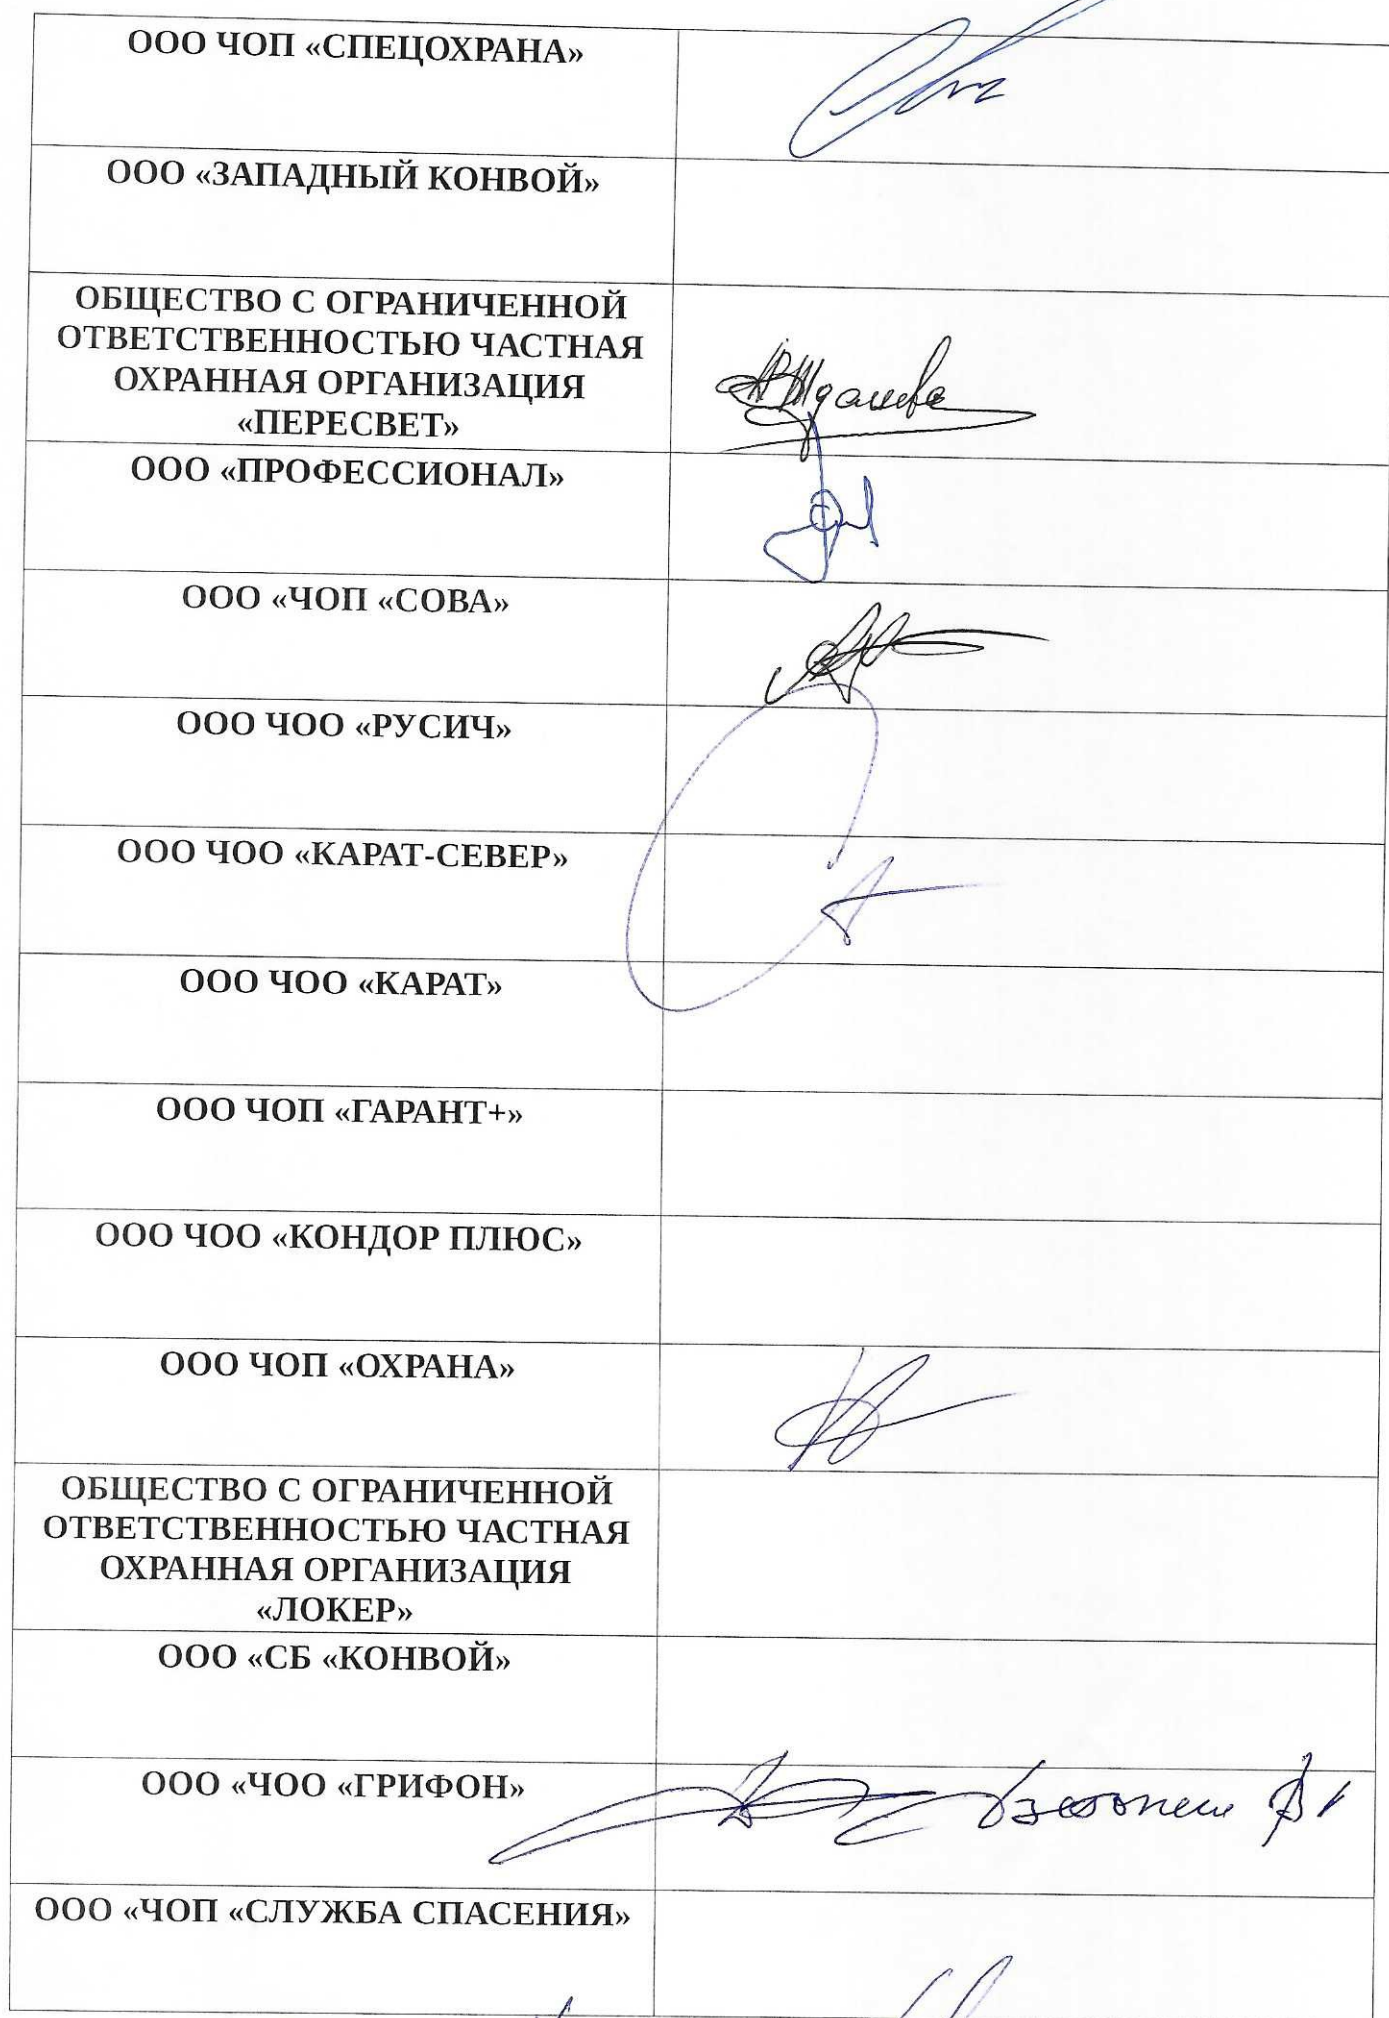 ООО ЧОП «СПЕЦОХРАНА»
ООО «ЗАПАДНЫЙ КОНВОЙ»
ОБЩЕСТВО С ОГРАНИЧЕННОЙ
ОТВЕТСТВЕННОСТЬЮ ЧАСТНАЯ
ОХРАННАЯ ОРГАНИЗАЦИЯ
«ПЕРЕСВЕТ»
ООО «ПРОФЕССИОНАЛ»
ООО «ЧОП «СОВА»
ООО ЧОО «РУСИЧ»
ООО ЧОО «КАРАТ-СЕВЕР»
ООО ЧОО «КАРАТ»
ООО ЧОП «ГАРАНТ+»
ООО ЧОО «КОНДОР ПЛЮС»
ООО ЧОП «ОХРАНА»
ОБЩЕСТВО С ОГРАНИЧЕННОЙ
ОТВЕТСТВЕННОСТЬЮ ЧАСТНАЯ
ОХРАННАЯ ОРГАНИЗАЦИЯ
«ЛОКЕР»
ООО «СБ «КОНВОЙ»
ООО «ЧОО «ГРИФОН»
ООО «ЧОП «СЛУЖБА СПАСЕНИЯ»